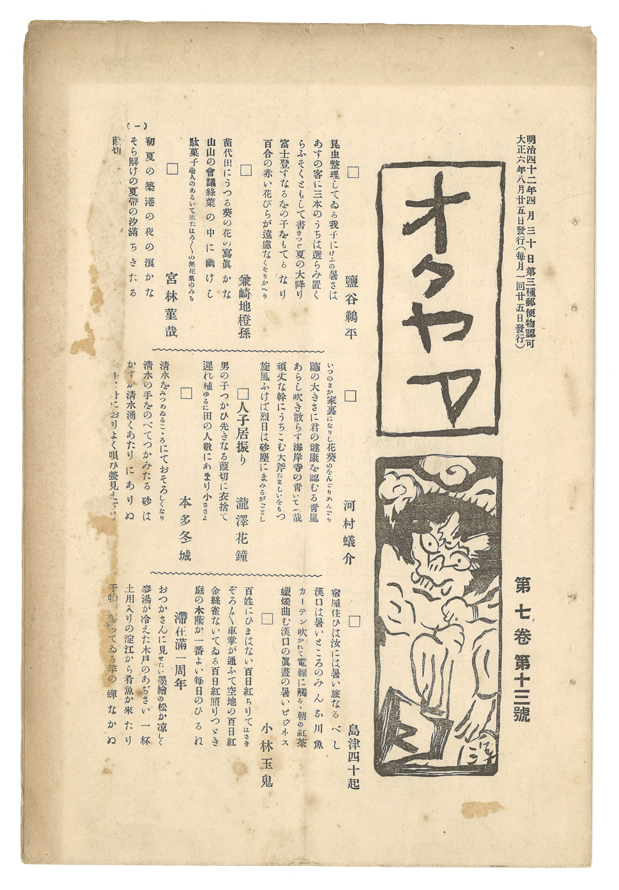 明治四十二年四月三十日第三種郵便物認可
大正六年八月廿五日發行(毎月一回廿五日發行)
オクヤマ
第七卷第十三號
□ 鹽谷鵜平
昆虫整理してゐる我子にけふの暑さは
あすの客に三本のうちは選らみ置く
らふそくともして書きつぐ夏の大降り
富士登すなるをの子をもてるなり
百合の赤い花びらが遠慮なくそりかへり
□ 兼崎地橙孫
苗代田にうつる葵の花の寫眞かな
山山の會議綠葉の中に幽けし
駄菓子
の無花果のみち
□ 宮林菫哉
初夏の築港の夜の濵かな
そら解けの夏帶の汐滿ちきたる
(一)
□ 河村蟻介
いつのまか家裏になりし花葵
臨の大きさに君の健康を認むる靑嵐
あらし吹き散らす海岸寺の靑いて一哉
頑丈な幹にうちこむ大斧
旋風ふけば烈日は砂塵にまみるがごとし
□人子居振り 瀧澤花鐘
男の子つかひ先きなる葭切に衣捨て
遲れ植ゆるに田の人數にあまり小
□ 本多冬城
淸水をみつめゐるこころにておそろしくなり
淸水の手をのべてつかみたる砂は
かすか淸水湧くあたりにありぬ
におりよく唄ひ螢見
□ 島津四十起
宿屋住ひは汝には暑い旅なるべし
漢口は暑いところのみんな川魚
カーテン吹かれて電線に觸る朝の紅茶
蠟燭曲む漢口の眞晝の暑いビジネス
□ 小林玉鬼
百姓にひまはない百日紅ちりて
ぞろぞろ車掌が通ふて空地の百日紅
金絲雀ないてゐる百日紅照りつとき
庭の木蔭が一番よい每日のひるね
滯在滿一周年
おつかさんに見せたい墨繪の松が凉しく
麥湯が冷えた木戶のあぢさい一杯
土用入りの淀江から肴魚が來たり
干物
てゐる竿の蟬なかぬ